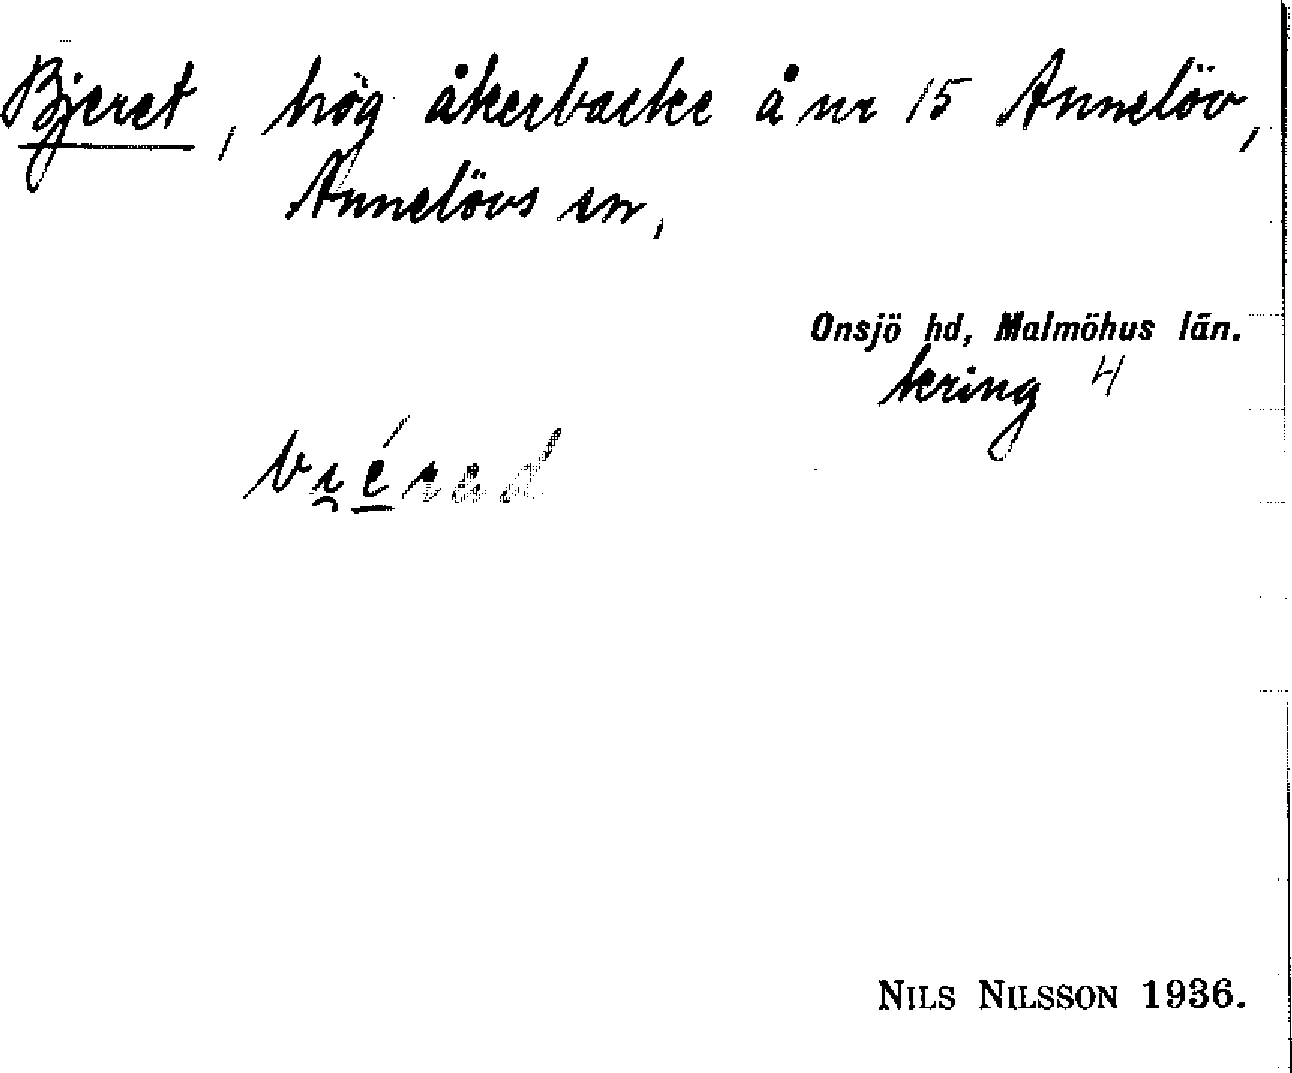 Bjeret, hög åkerbacke å nr 15 Annelöv,
Annelövs sn,
Onsjö hd, Malmöhus län.
kring 4
NILS NILSSON 1936.